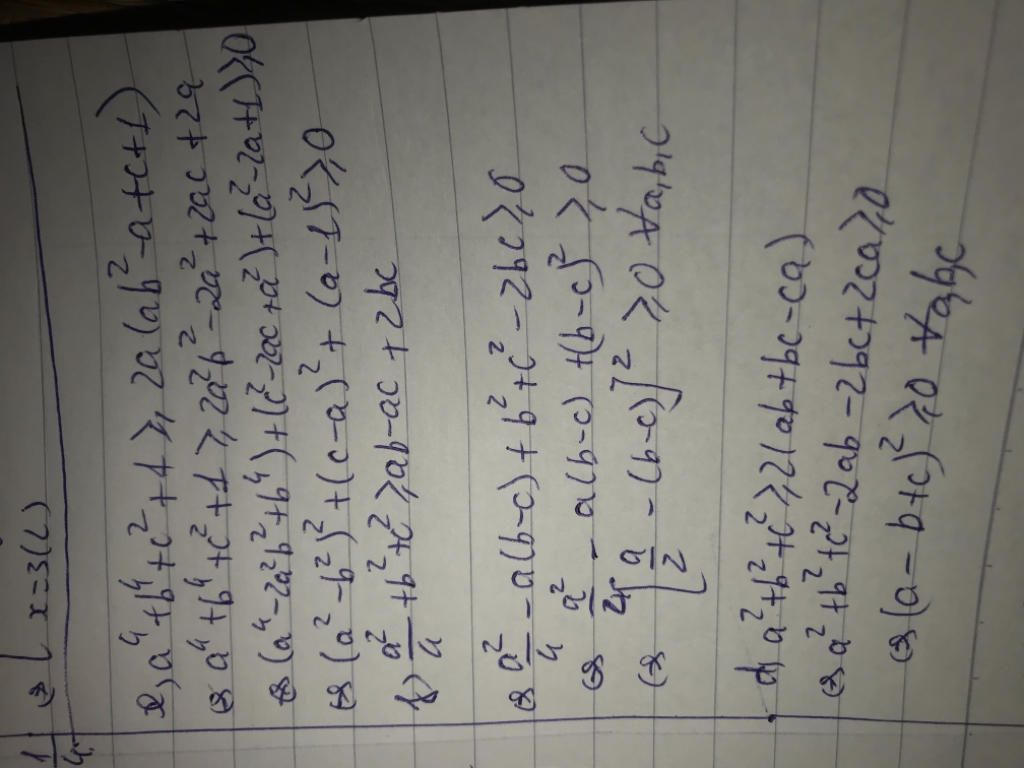 1/4 ⇔ [ x=3(L)
e, a⁴+b⁴+c²+1 ≥ 2a(ab²-a+c+1)
⇔ a⁴+b⁴+c²+1 ≥ 2a²b²-2a²+2ac+2a
⇔ (a⁴-2a²b²+b⁴)+(c²-2ac+a²)+(a²-2a+1) ≥ 0
⇔ (a²-b²)²+(c-a)²+(a-1)² ≥ 0
b) a²/4 +b²+c² ≥ ab-ac+2bc
⇔ a²/4 - a(b-c)+b²+c²-2bc ≥ 0
⇔ a²/4 - a(b-c)+(b-c)² ≥ 0
⇔ [a/2 - (b-c)]² ≥ 0 ∀a,b,c
d, a²+b²+c² ≥ 2(ab+bc-ca)
⇔ a²+b²+c²-2ab-2bc+2ca ≥ 0
⇔ (a-b+c)² ≥ 0 ∀a,b,c